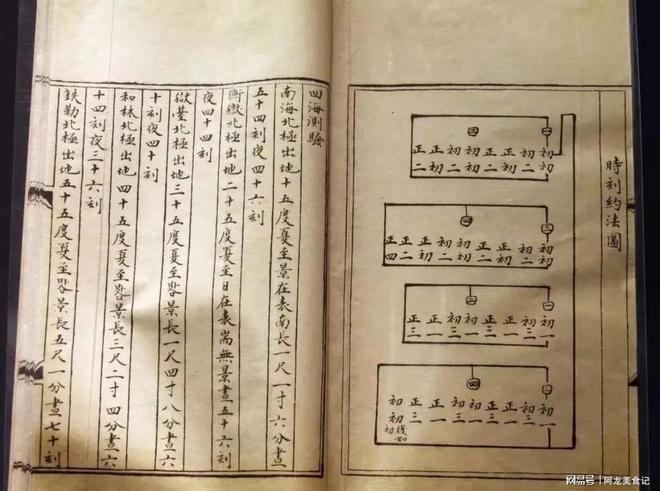 時刻約法圖
初初正正初初正正
初二初二初二初二
初初正正初初正正正
初二初二初二初二四
初初正正初初正正
一三一三一三一三
初初正正初初正正初
一三一三一三一三初
四海測驗
南海北極出地十五度夏至景在表南長一尺一寸六分晝
五十四刻夜四十六刻
衡嶽北極出地二十五度夏至日在表耑無景晝五十六刻
夜四十四刻
嶽臺北極出地三十五度夏至晷景長一尺四寸八分晝六
十刻夜四十刻
和林北極出地四十五度夏至晷景長三尺二寸四分晝六
十四刻夜三十六刻
鉄勒北極出地五十五度夏至晷景長五尺一分晝七十刻
网易号 | 阿龙美食记